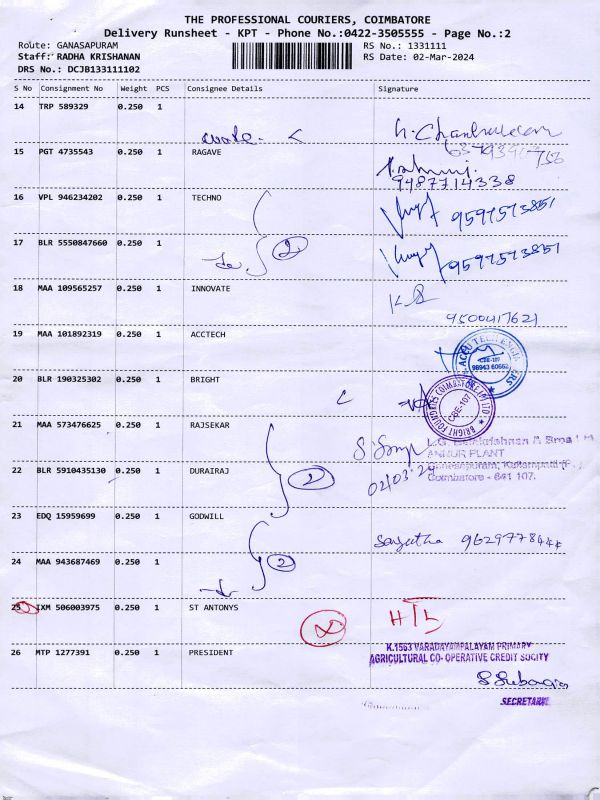 THE PROFESSIONAL COURIERS, COIMBATORE
Delivery Runsheet - KPT - Phone No.:0422-3505555 - Page No.:2
Route: GANASAPURAM RS No.: 1331111
Staff: RADHA KRISHANAN RS Date: 02-Mar-2024
DRS No.: DCJB133111102
S No Consignment No Weight PCS Consignee Details Signature
14 TRP 589329 0.250 1
15 PGT 4735543 0.250 1 RAGAVE
9487714338
16 VPL 946234202 0.250 1 TECHNO
9597573851
17 BLR 5550847660 0.250 1 2
9597573851
18 MAA 109565257 0.250 1 INNOVATE
9500417621
19 MAA 101892319 0.250 1 ACCTECH
CBE-107
20 BLR 190325302 0.250 1 BRIGHT
BRIGHT FOUNDRIES COIMBATORE (P) LTD.
CBE-107
21 MAA 573476625 0.250 1 RAJSEKAR
ANNUR PLANT
22 BLR 5910435130 0.250 1 DURAIRAJ 2
Coimbatore - 641 107.
23 EDQ 15959699 0.250 1 GODWILL
Sangeetha
24 MAA 943687469 0.250 1 2
25 IXM 506003975 0.250 1 ST ANTONYS
26 MTP 1277391 0.250 1 PRESIDENT
K.1563 VARADAYAMPALAYAM PRIMARY
AGRICULTURAL CO-OPERATIVE CREDIT SOCITY
SECRETARY